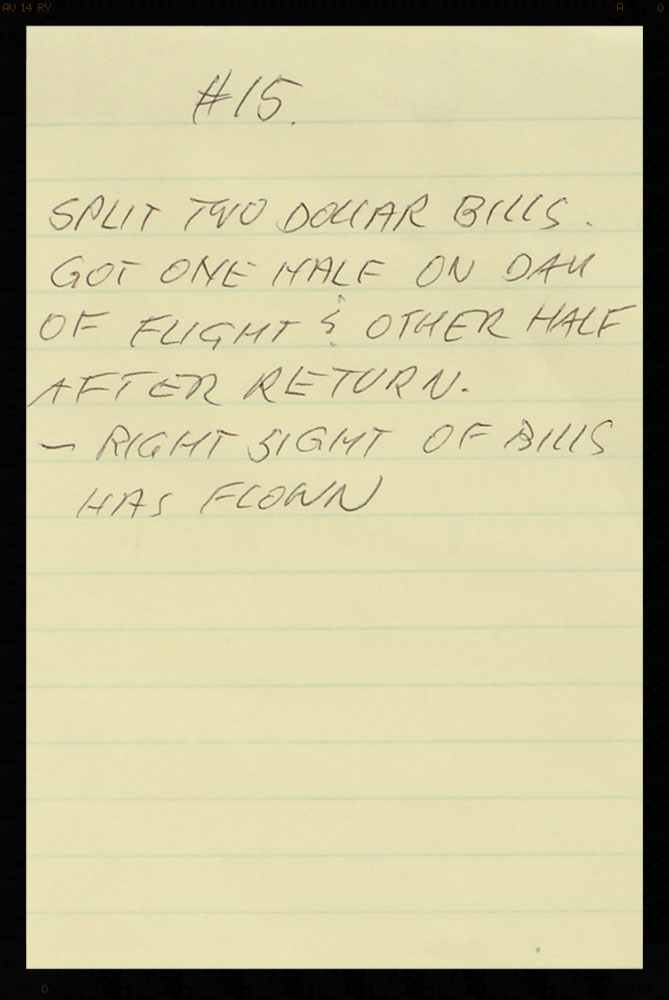 AV 14 RY
A
0
#15.
SPLIT TWO DOLLAR BILLS.
GOT ONE HALF ON DAY
OF FLIGHT & OTHER HALF
AFTER RETURN.
— RIGHT SIGHT OF BILLS
HAS FLOWN
0